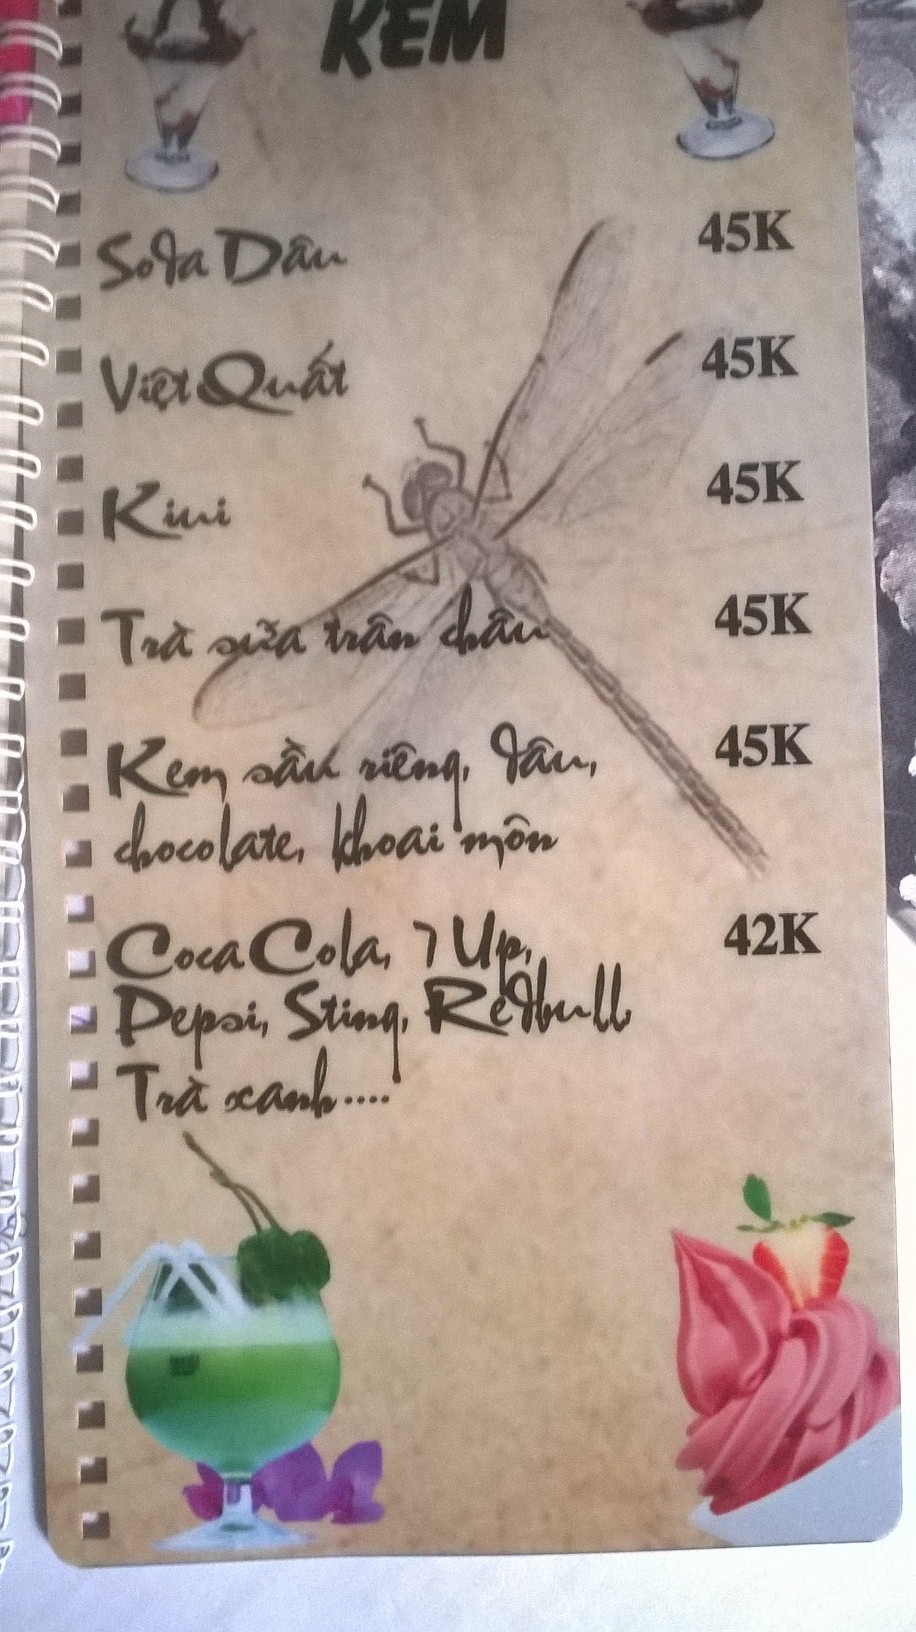 KEM
Soda Dâu 45K
Việt Quất 45K
Kiwi 45K
Trà sữa trân châu 45K
Kem sầu riêng, dâu, 45K
chocolate, khoai môn
Coca Cola, 7 Up, 42K
Pepsi, Sting, Redbull
Trà xanh....